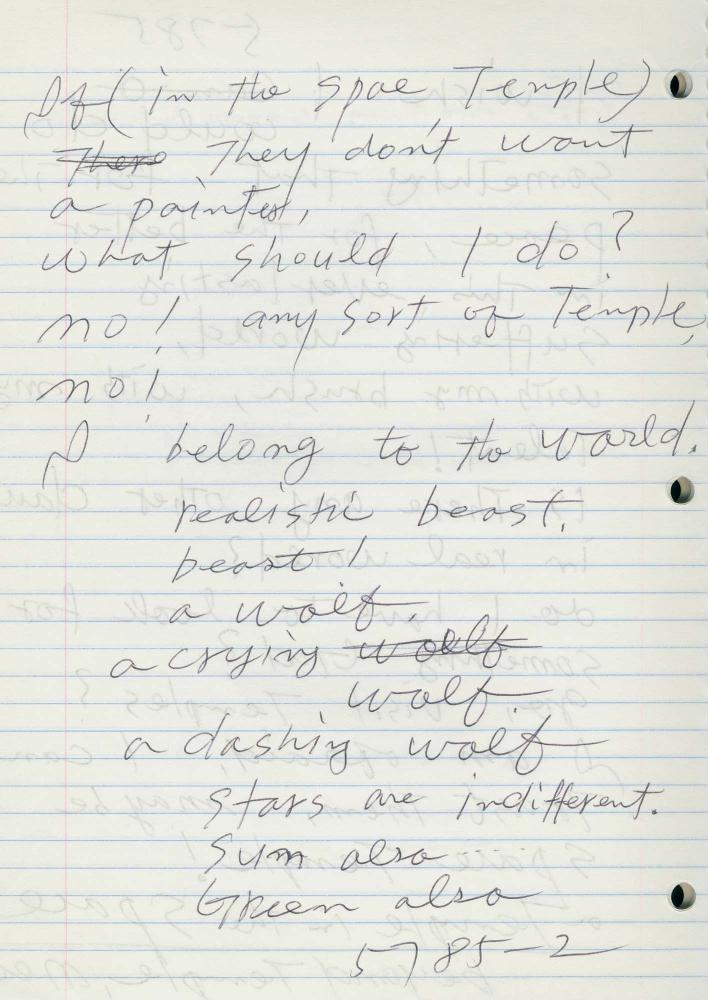 If (in the spae Temple)
There They don't want
a painter,
what should I do?
no! any sort of Temple,
no!
I belong to the world.
realistic beast,
beast!
a wolf.
a crying wolf
wolf.
a dashing wolf
stars are indifferent.
Sum also ....
Green also
5785-2